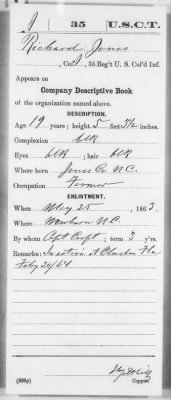 J 35 U.S.C.T.
Richard Jones
, Co. J, 35 Reg't U. S. Col'd Inf.
Appears on
Company Descriptive Book
of the organization named above.
DESCRIPTION.
Age 19 years; height 5 feet 3½ inches.
Complexion blk
Eyes blk ; hair blk
Where born Jones Co. N.C.
Occupation Farmer
ENLISTMENT.
When May 25 , 1863.
Where Newbern N.C.
By whom Capt Croft ; term 3 y'rs.
Remarks: In action at Olustee Fla
Feby 20/64
(383g) Copyist.